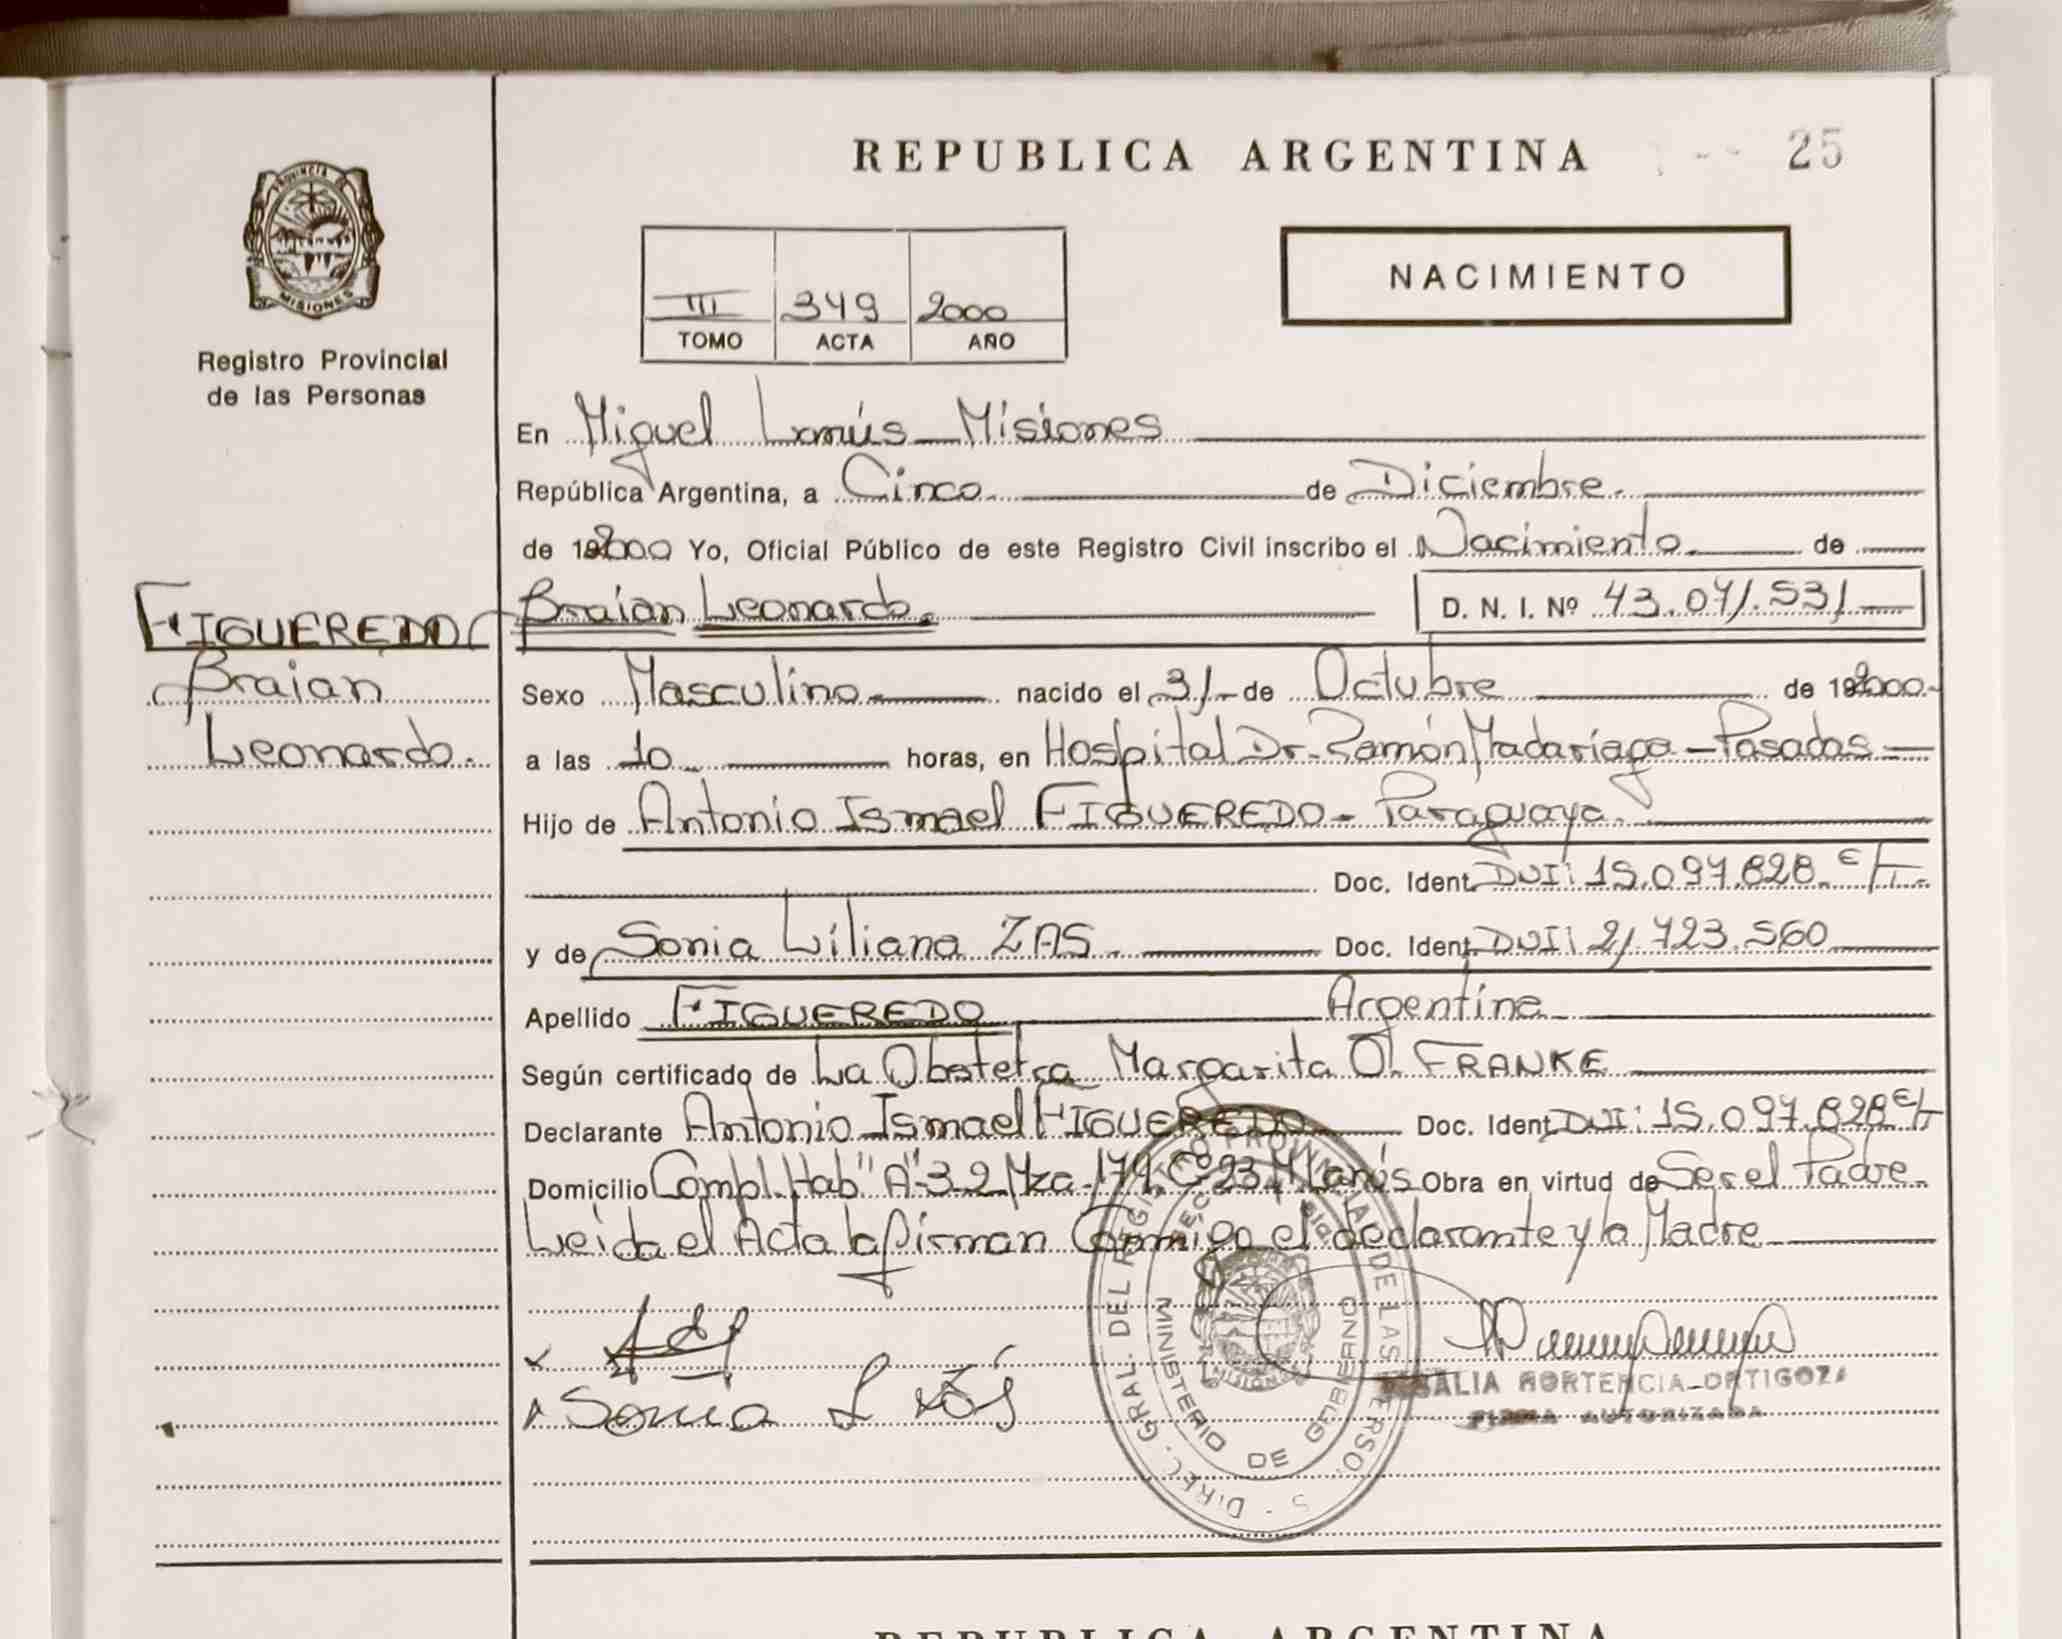 REPUBLICA ARGENTINA
25
PROVINCIA DE
MISIONES
Registro Provincial
de las Personas
III 349 2000
TOMO ACTA AÑO
NACIMIENTO
En Miguel Lanús Misiones
República Argentina, a Cinco de Diciembre
de 2000 Yo, Oficial Público de este Registro Civil inscribo el Nacimiento de
FIGUEREDO Braian Leonardo. D. N. I. Nº 43.071.531
Braian
Leonardo.
Sexo Masculino nacido el 31 de Octubre de 2000
a las 10 horas, en Hospital Dr. Ramón Madariaga - Posadas
Hijo de Antonio Ismael FIGUEREDO - Paraguayo
Doc. Ident. DNI: 15.097.828
y de Sonia Liliana ZAS Doc. Ident. DNI: 21.723.560
Apellido FIGUEREDO Argentina
Según certificado de La Obstetra Margarita O. FRANKE
Declarante Antonio Ismael FIGUEREDO Doc. Ident. DNI: 15.097.828
Domicilio Compl. Hab "A" 3.2 Mza. 179 Cº 23 M. Lanús Obra en virtud de Ser el Padre
Leida el Acta la firman Conmigo el declarante y la Madre
Sonia L Zás
HORTENCIA ORTIGOZA
FIRMA AUTORIZADA
MINISTERIO DE GOBIERNO